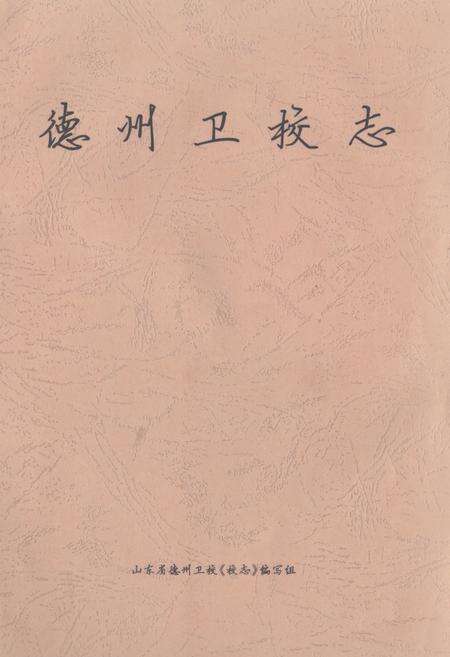 德州卫校志
山东省德州卫校《校志》编写组